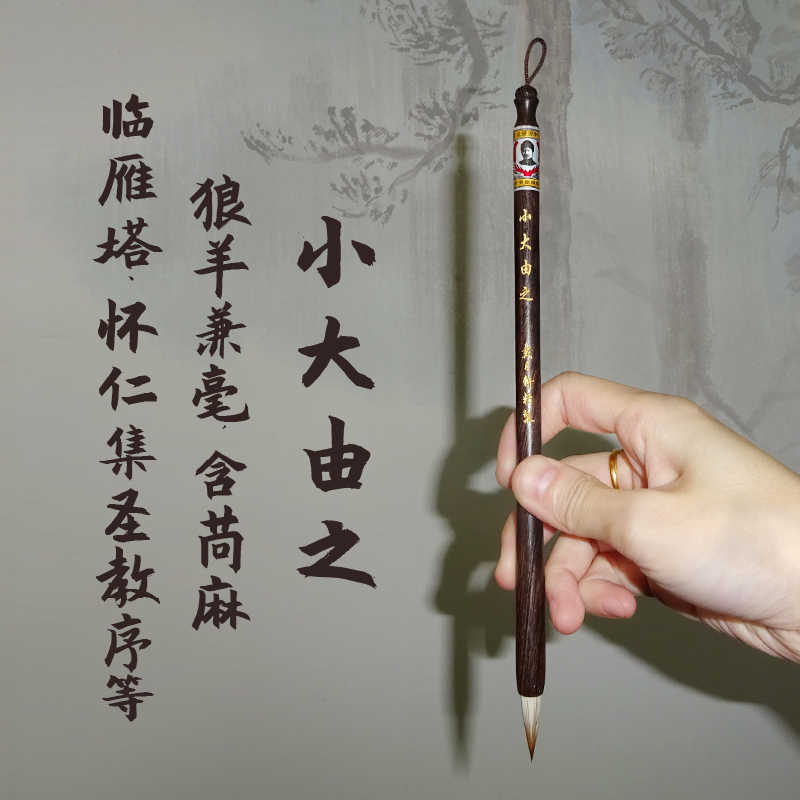 小大由之
狼羊兼毫，含苘麻
临雁塔、怀仁集圣教序等
小大由之